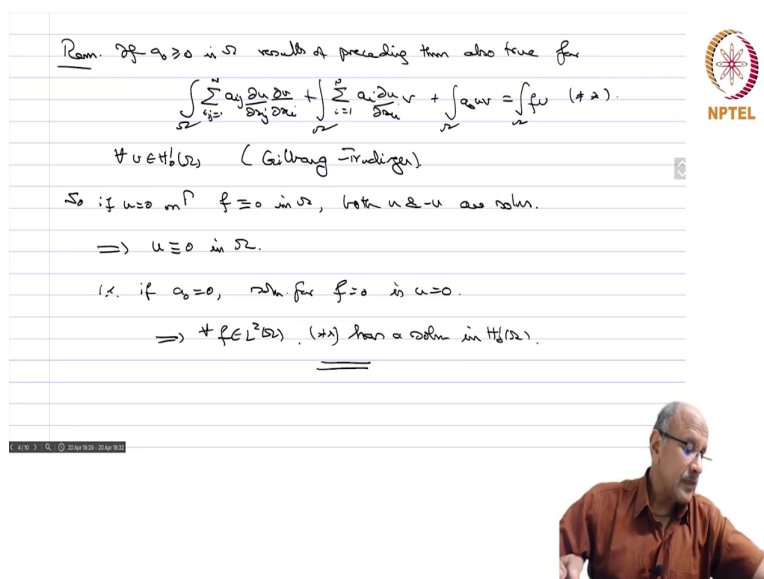 Rem. If a₀ ≥ 0 in Ω results of preceding thm also true for
∫_Ω Σ_{i,j=1}^N a_{ij} ∂u/∂x_j ∂v/∂x_i + ∫_Ω Σ_{i=1}^N a_i ∂u/∂x_i v + ∫_Ω a₀uv = ∫_Ω fv (**).
∀ v ∈ H₀¹(Ω) (Gilbarg-Trudinger)
So if u=0 on Γ f ≡ 0 in Ω, both u & -u are soln.
⟹ u ≡ 0 in Ω.
i.e. if a₀=0, soln. for f=0 is u=0.
⟹ ∀ f ∈ L²(Ω). (**) has a soln in H₀¹(Ω).
NPTEL
4/10
20 Apr 18:29 - 20 Apr 18:32